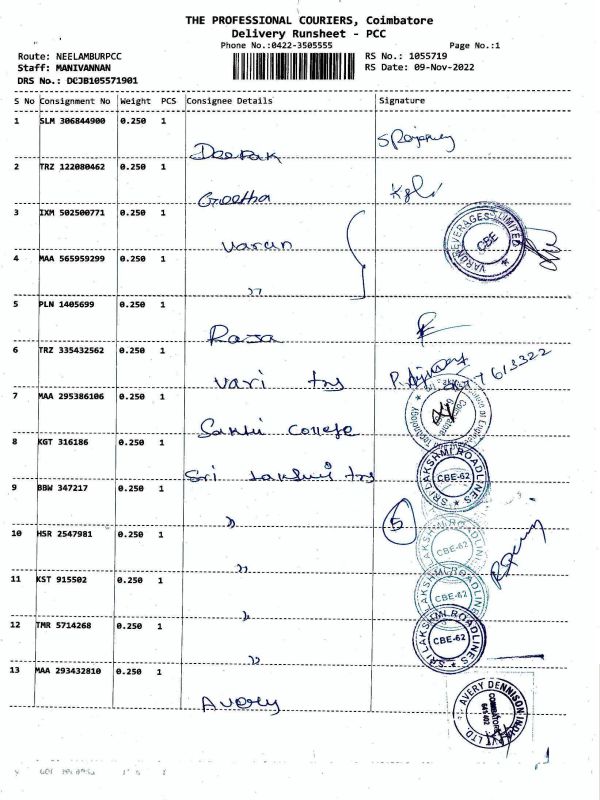 THE PROFESSIONAL COURIERS, Coimbatore
Delivery Runsheet - PCC
Phone No.:0422-3505555 Page No.:1
Route: NEELAMBURPCC RS No.: 1055719
Staff: MANIVANNAN RS Date: 09-Nov-2022
DRS No.: DCJB105571901
S No Consignment No Weight PCS Consignee Details Signature
1 SLM 306844900 0.250 1
Deepak
2 TRZ 122080462 0.250 1
Geetha
3 IXM 502500771 0.250 1
Varun
VARUN BEVERAGES LIMITED CBE
4 MAA 565959299 0.250 1
"
5 PLN 1405699 0.250 1
Raja
6 TRZ 335432562 0.250 1
Vari tns
7 MAA 295386106 0.250 1
Sakthi College
8 KGT 316186 0.250 1
Sri Lakshmi tns
SRI LAKSHMI ROADLINES CBE-62
9 BBW 347217 0.250 1
" 5
10 HSR 2547981 0.250 1
"
SRI LAKSHMI ROADLINES CBE-62
11 KST 915502 0.250 1
"
SRI LAKSHMI ROADLINES CBE-62
12 TMR 5714268 0.250 1
"
SRI LAKSHMI ROADLINES CBE-62
13 MAA 293432810 0.250 1
Avery
AVERY DENNISON INDIA PVT LTD. COIMBATORE 641 402